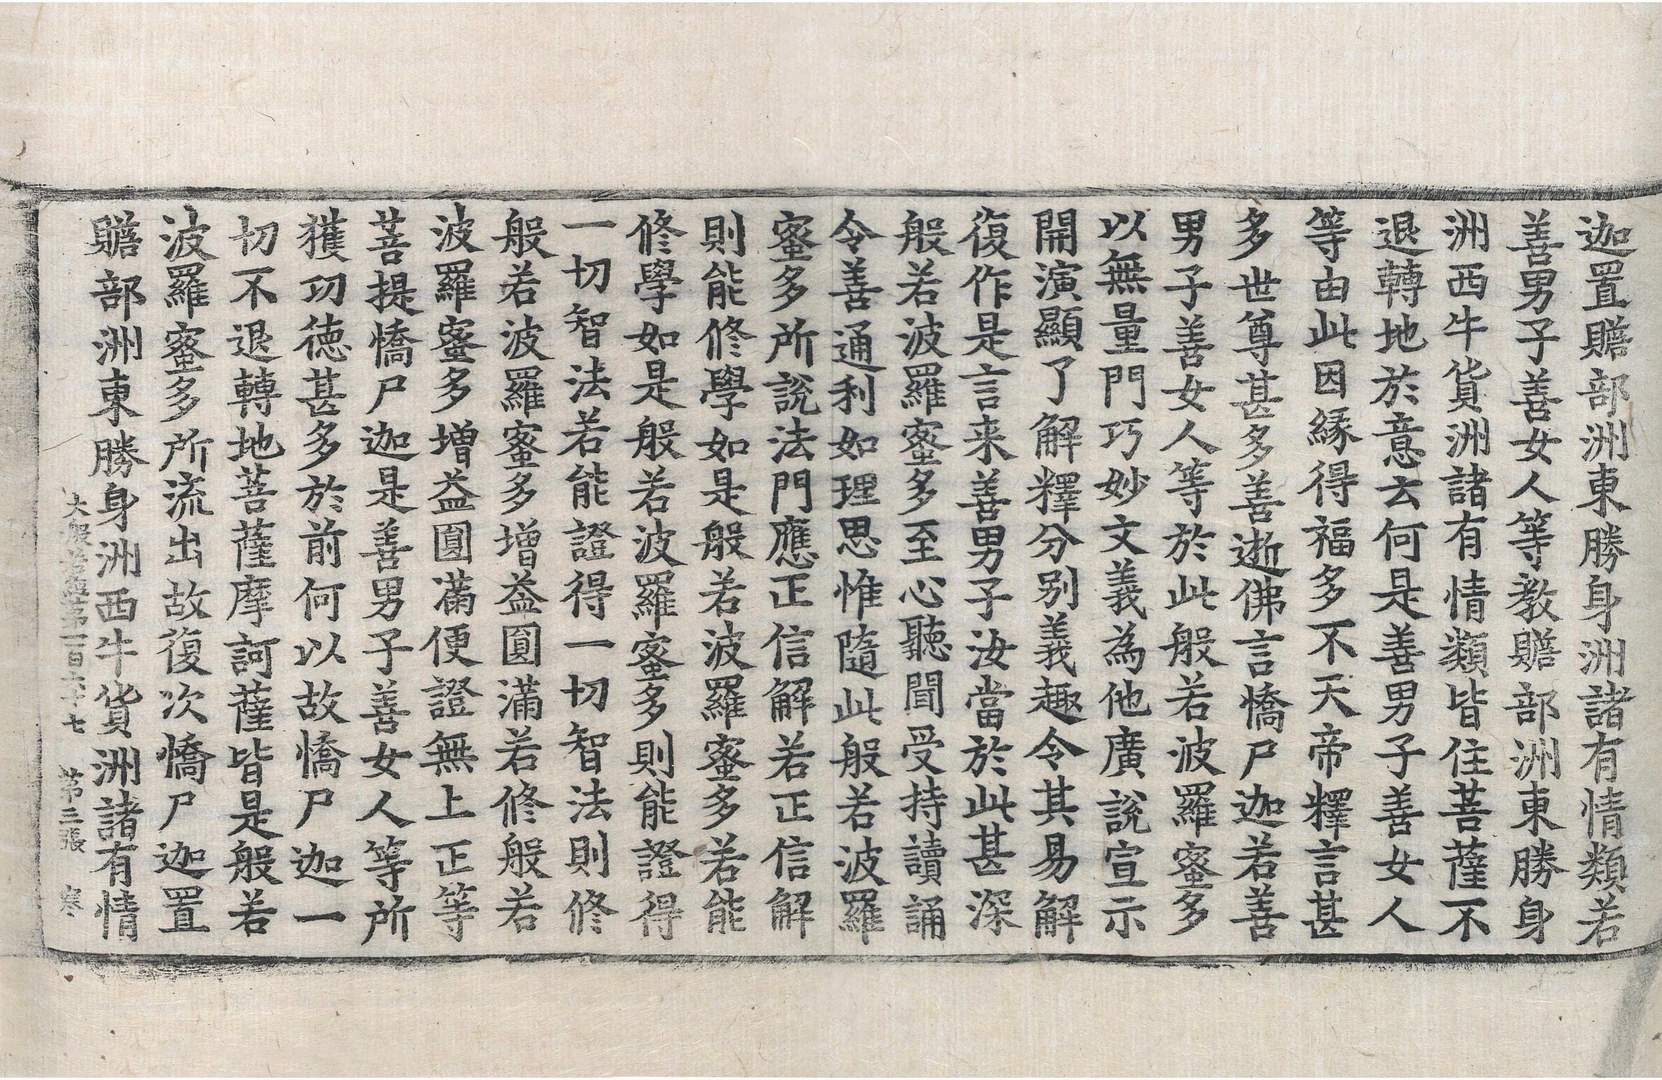 迦置贍部洲東勝身洲諸有情類若
善男子善女人等教贍部洲東勝身
洲西牛貨洲諸有情類皆住菩薩不
退轉地於意云何是善男子善女人
等由此因緣得福多不天帝釋言甚
多世尊甚多善逝佛言憍尸迦若善
男子善女人等於此般若波羅蜜多
以無量門巧妙文義為他廣說宣示
開演顯了解釋分別義趣令其易解
復作是言来善男子汝當於此甚深
般若波羅蜜多至心聽聞受持讀誦
令善通利如理思惟隨此般若波羅
蜜多所說法門應正信解若正信解
則能修學如是般若波羅蜜多若能
修學如是般若波羅蜜多則能證得
一切智法若能證得一切智法則修
般若波羅蜜多增益圓滿若修般若
波羅蜜多增益圓滿便證無上正等
菩提憍尸迦是善男子善女人等所
獲功德甚多於前何以故憍尸迦一
切不退轉地菩薩摩訶薩皆是般若
波羅蜜多所流出故復次憍尸迦置
贍部洲東勝身洲西牛貨洲諸有情
大般若經第一百六十七 第三張 寒